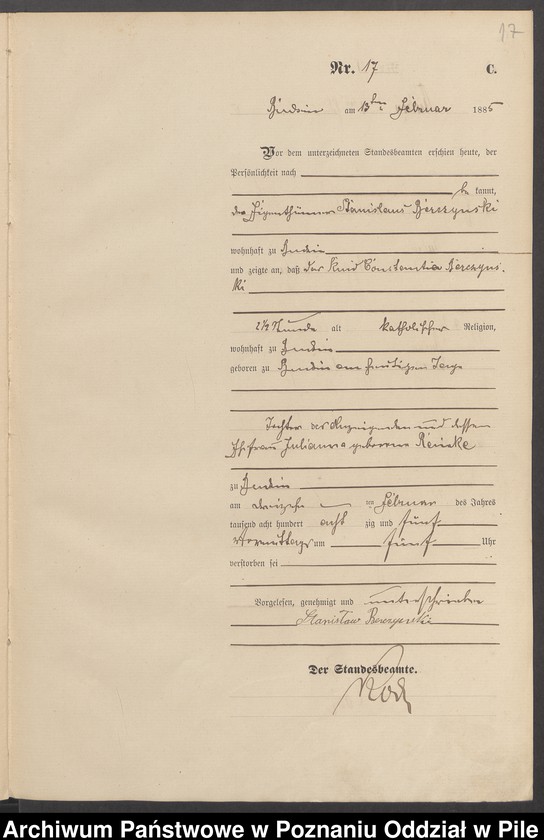 17
Nr. 17 C.
am 13ten Februar 1885
Vor dem unterzeichneten Standesbeamten erschien heute, der
Persönlichkeit nach
be kannt,
der Eigenthümer Stanislaus Berczynski
wohnhaft zu
und zeigte an, daß das Kind Constantia Berczyns-
ki
2½ Stunde alt katholischer Religion,
wohnhaft zu
geboren zu am heutigen Tage
Tochter des Anzeigenden und dessen
Ehefrau Julianna geborene Reincke
zu
am dreizehn ten Februar des Jahres
tausend acht hundert acht zig und fünf
Vormittags um fünf Uhr
verstorben sei
Vorgelesen, genehmigt und unterschrieben
Stanisław Berczynski
Der Standesbeamte.
Archiwum Państwowe w Poznaniu Oddział w Pile